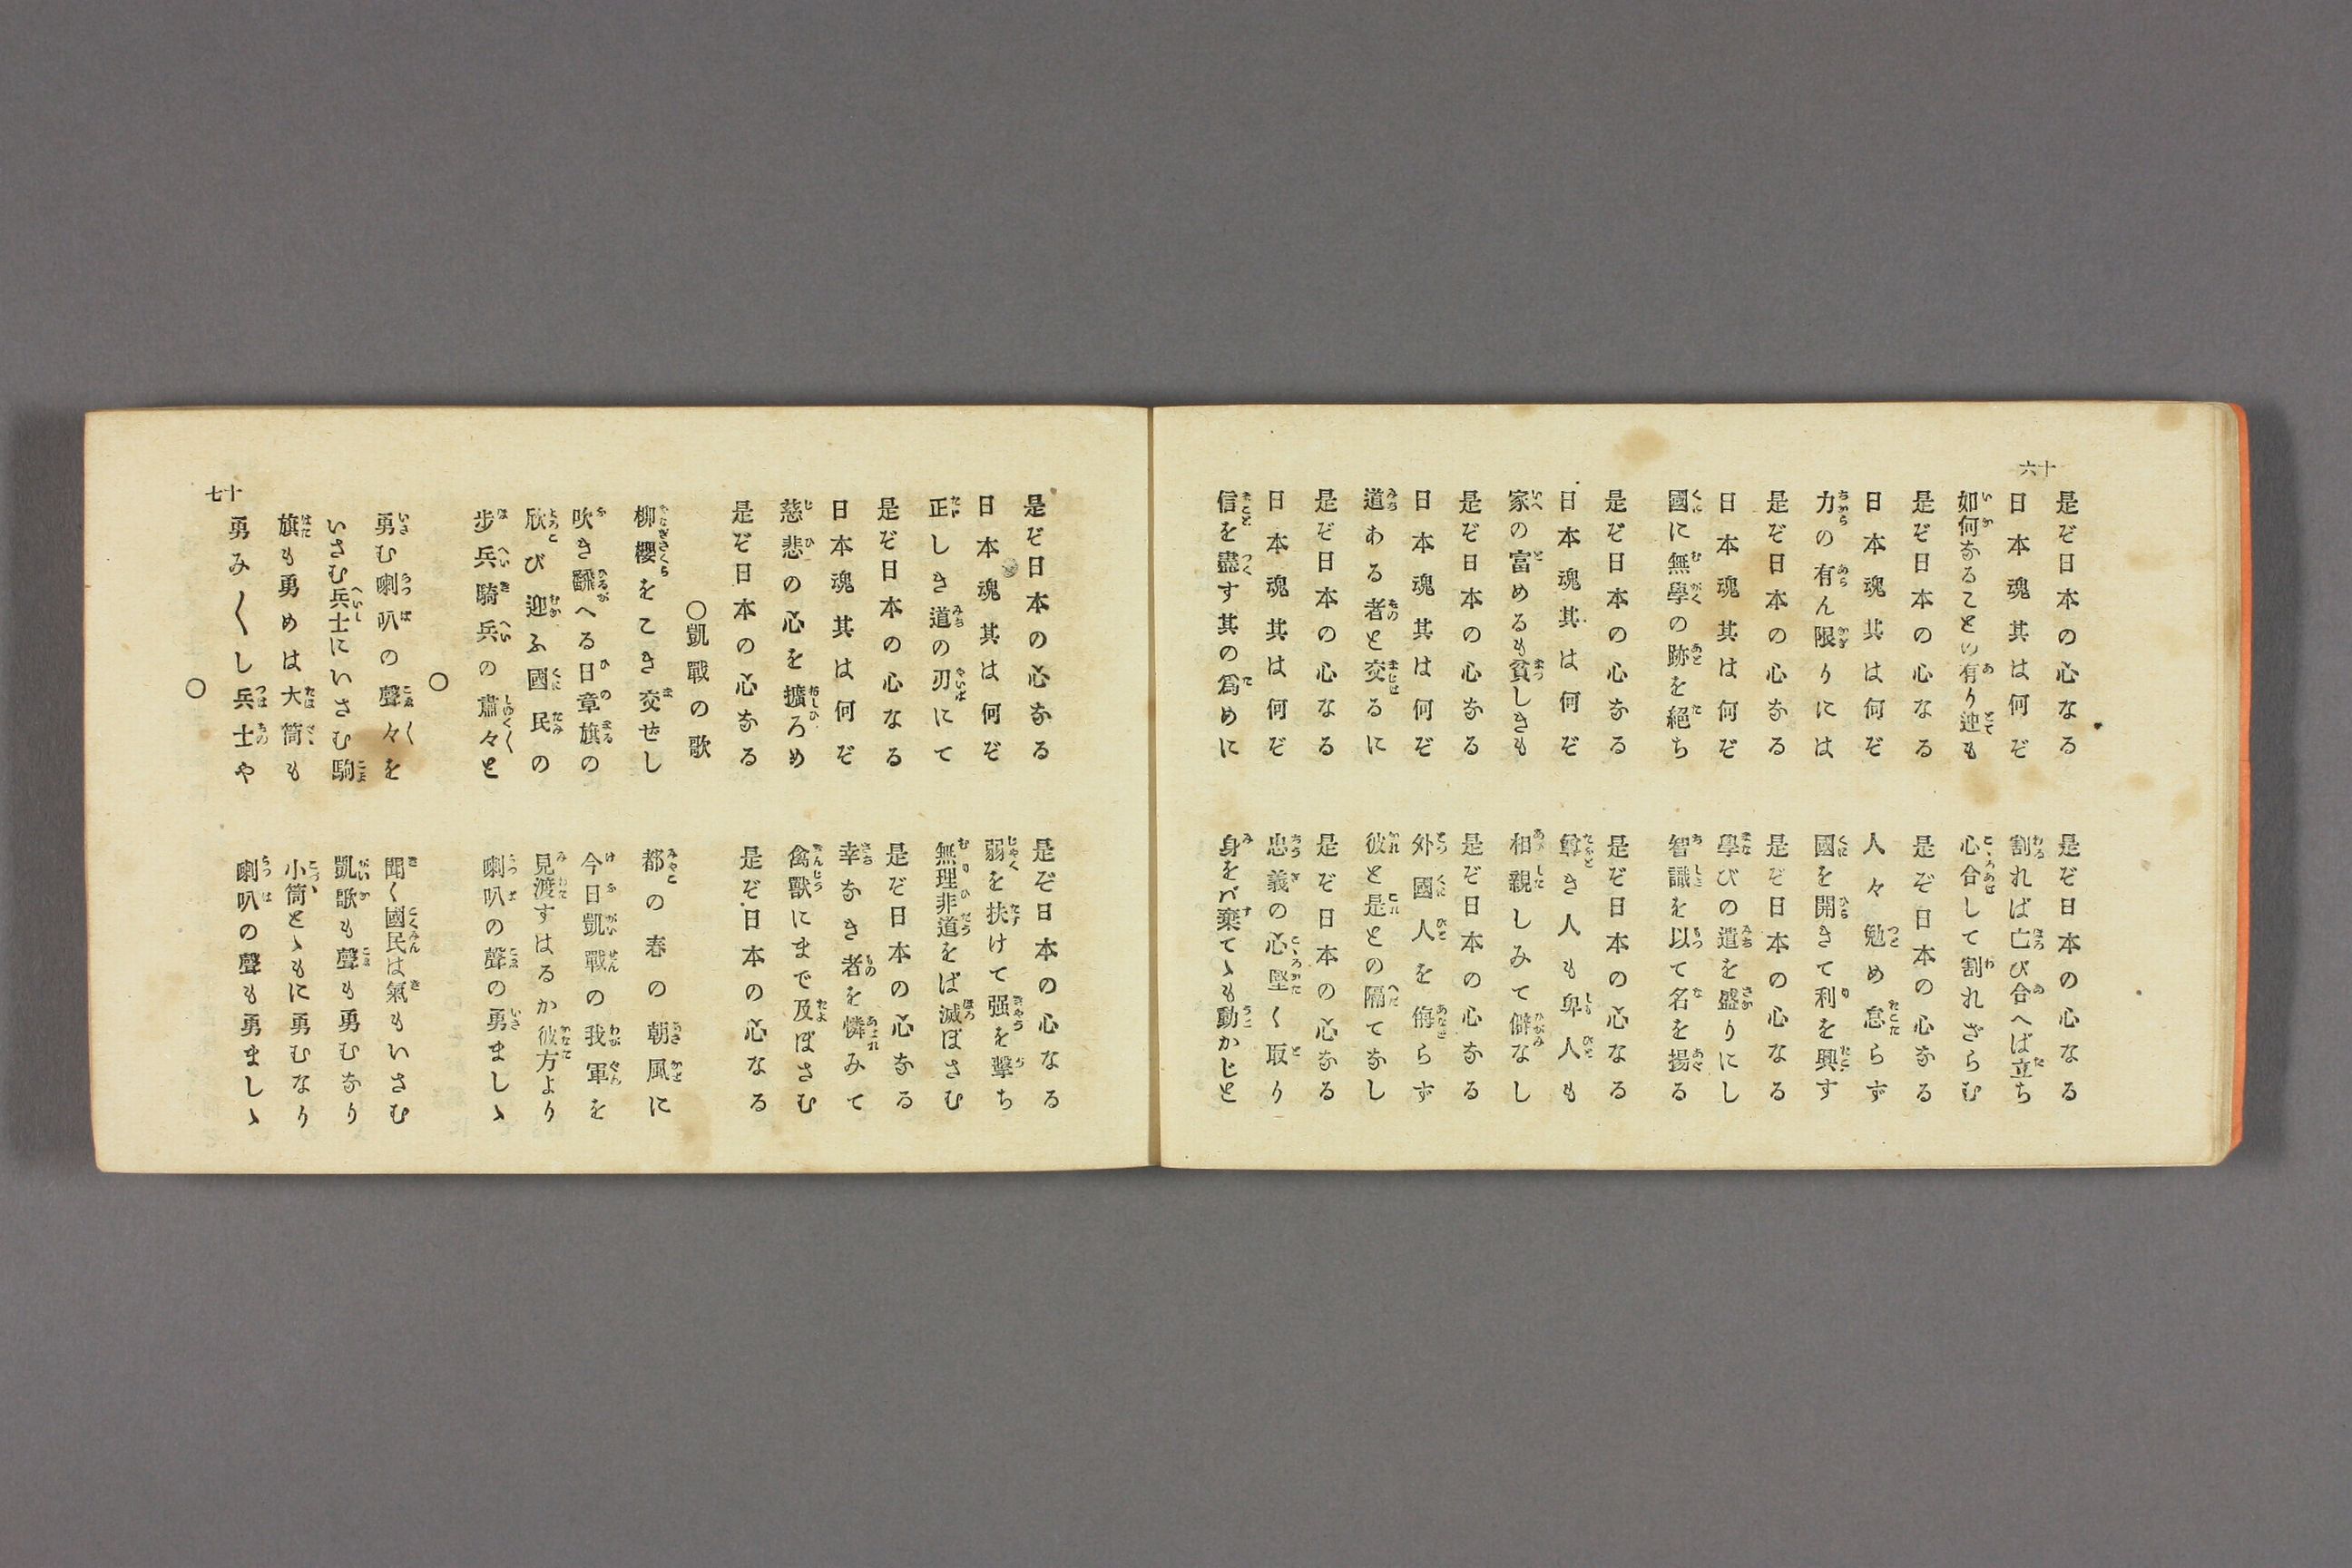 十六
是ぞ日本の心なる　是ぞ日本の心なる
日本魂其は何ぞ　割れば亡び合へば立ち
如何なることの有り迚も　心合して割れざらむ
是ぞ日本の心なる　是ぞ日本の心なる
日本魂其は何ぞ　人々勉め怠らず
力の有ん限りには　國を開きて利を興す
是ぞ日本の心なる　是ぞ日本の心なる
日本魂其は何ぞ　學びの道を盛りにし
國に無學の跡を絕ち　智識を以て名を揚る
是ぞ日本の心なる　是ぞ日本の心なる
日本魂其は何ぞ　尊き人も卑人も
家の富めるも貧しきも　相親しみて僻なし
是ぞ日本の心なる　是ぞ日本の心なる
日本魂其は何ぞ　外國人を侮らず
道ある者と交るに　彼と是との隔てなし
是ぞ日本の心なる　是ぞ日本の心なる
日本魂其は何ぞ　忠義の心堅く取り
信を盡す其の爲めに　身をバ棄てゝも動かじと
是ぞ日本の心なる　是ぞ日本の心なる
日本魂其は何ぞ　弱を扶けて强を擊ち
正しき道の刃にて　無理非道をば滅ぼさむ
是ぞ日本の心なる　是ぞ日本の心なる
日本魂其は何ぞ　幸なき者を憐みて
慈悲の心を擴ろめ　禽獸にまで及ぼさむ
是ぞ日本の心なる　是ぞ日本の心なる
○凱戰の歌
柳櫻をこき交せし　都の春の朝風に
吹き飜へる日章旗の　今日凱戰の我軍を
欣び迎ふ國民の　見渡すはるか彼方より
步兵騎兵の肅々と　喇叭の聲の勇ましゝ
○
勇む喇叭の聲々を　聞く國民は氣もいさむ
いさむ兵士にいさむ駒　凱歌も聲も勇むなり
旗も勇めは大筒も　小筒とゝもに勇むなり
勇み〱し兵士や　喇叭の聲も勇ましゝ
○
十七